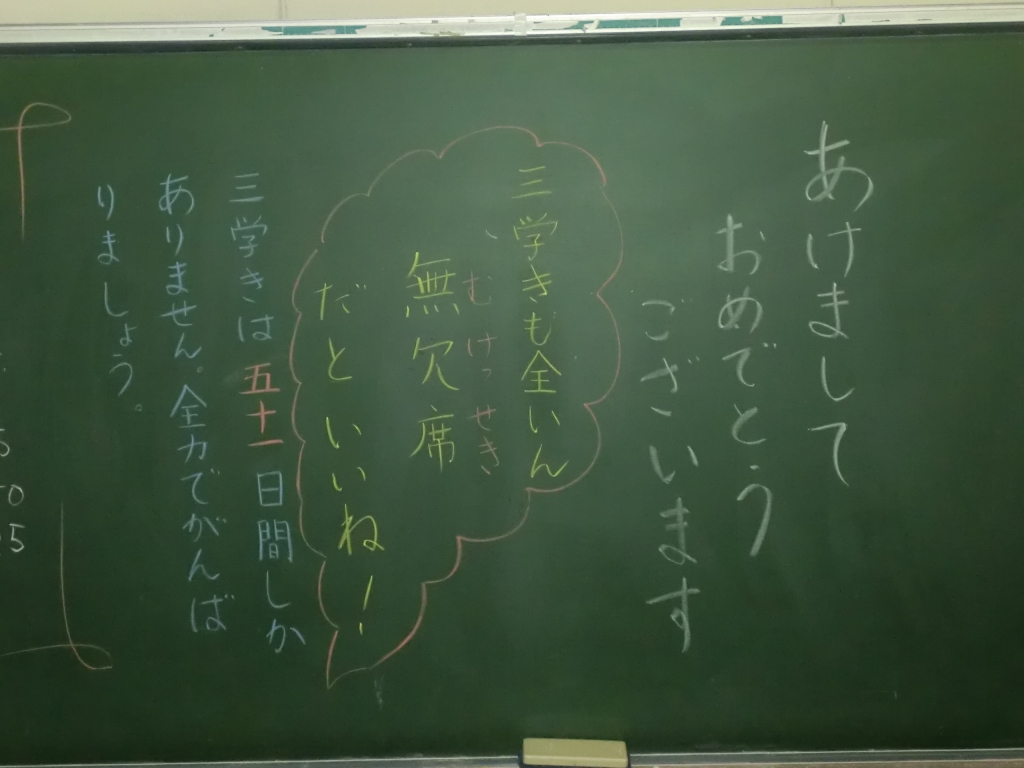 あけまして
おめでとう
ございます
三学きも全いん
むけっせき
無欠席
だといいね！
三学きは五十一日間しか
ありません。全力でがんば
りましょう。